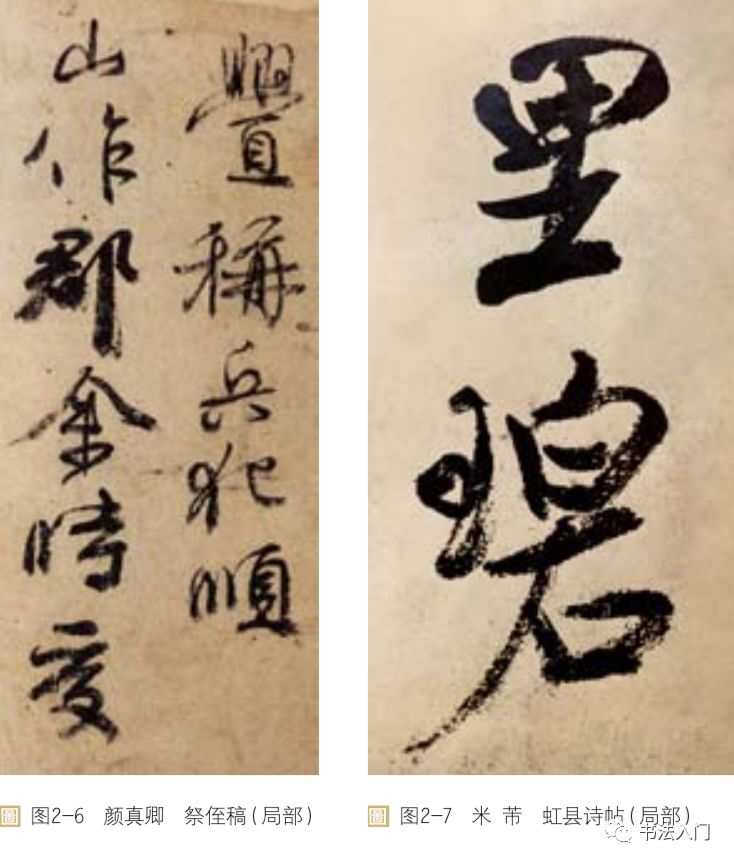 舋稱兵犯順
山作郡余時受
里碧
圖 图2-6 颜真卿 祭侄稿(局部)
圖 图2-7 米 芾 虹县诗帖(局部)
书法入门